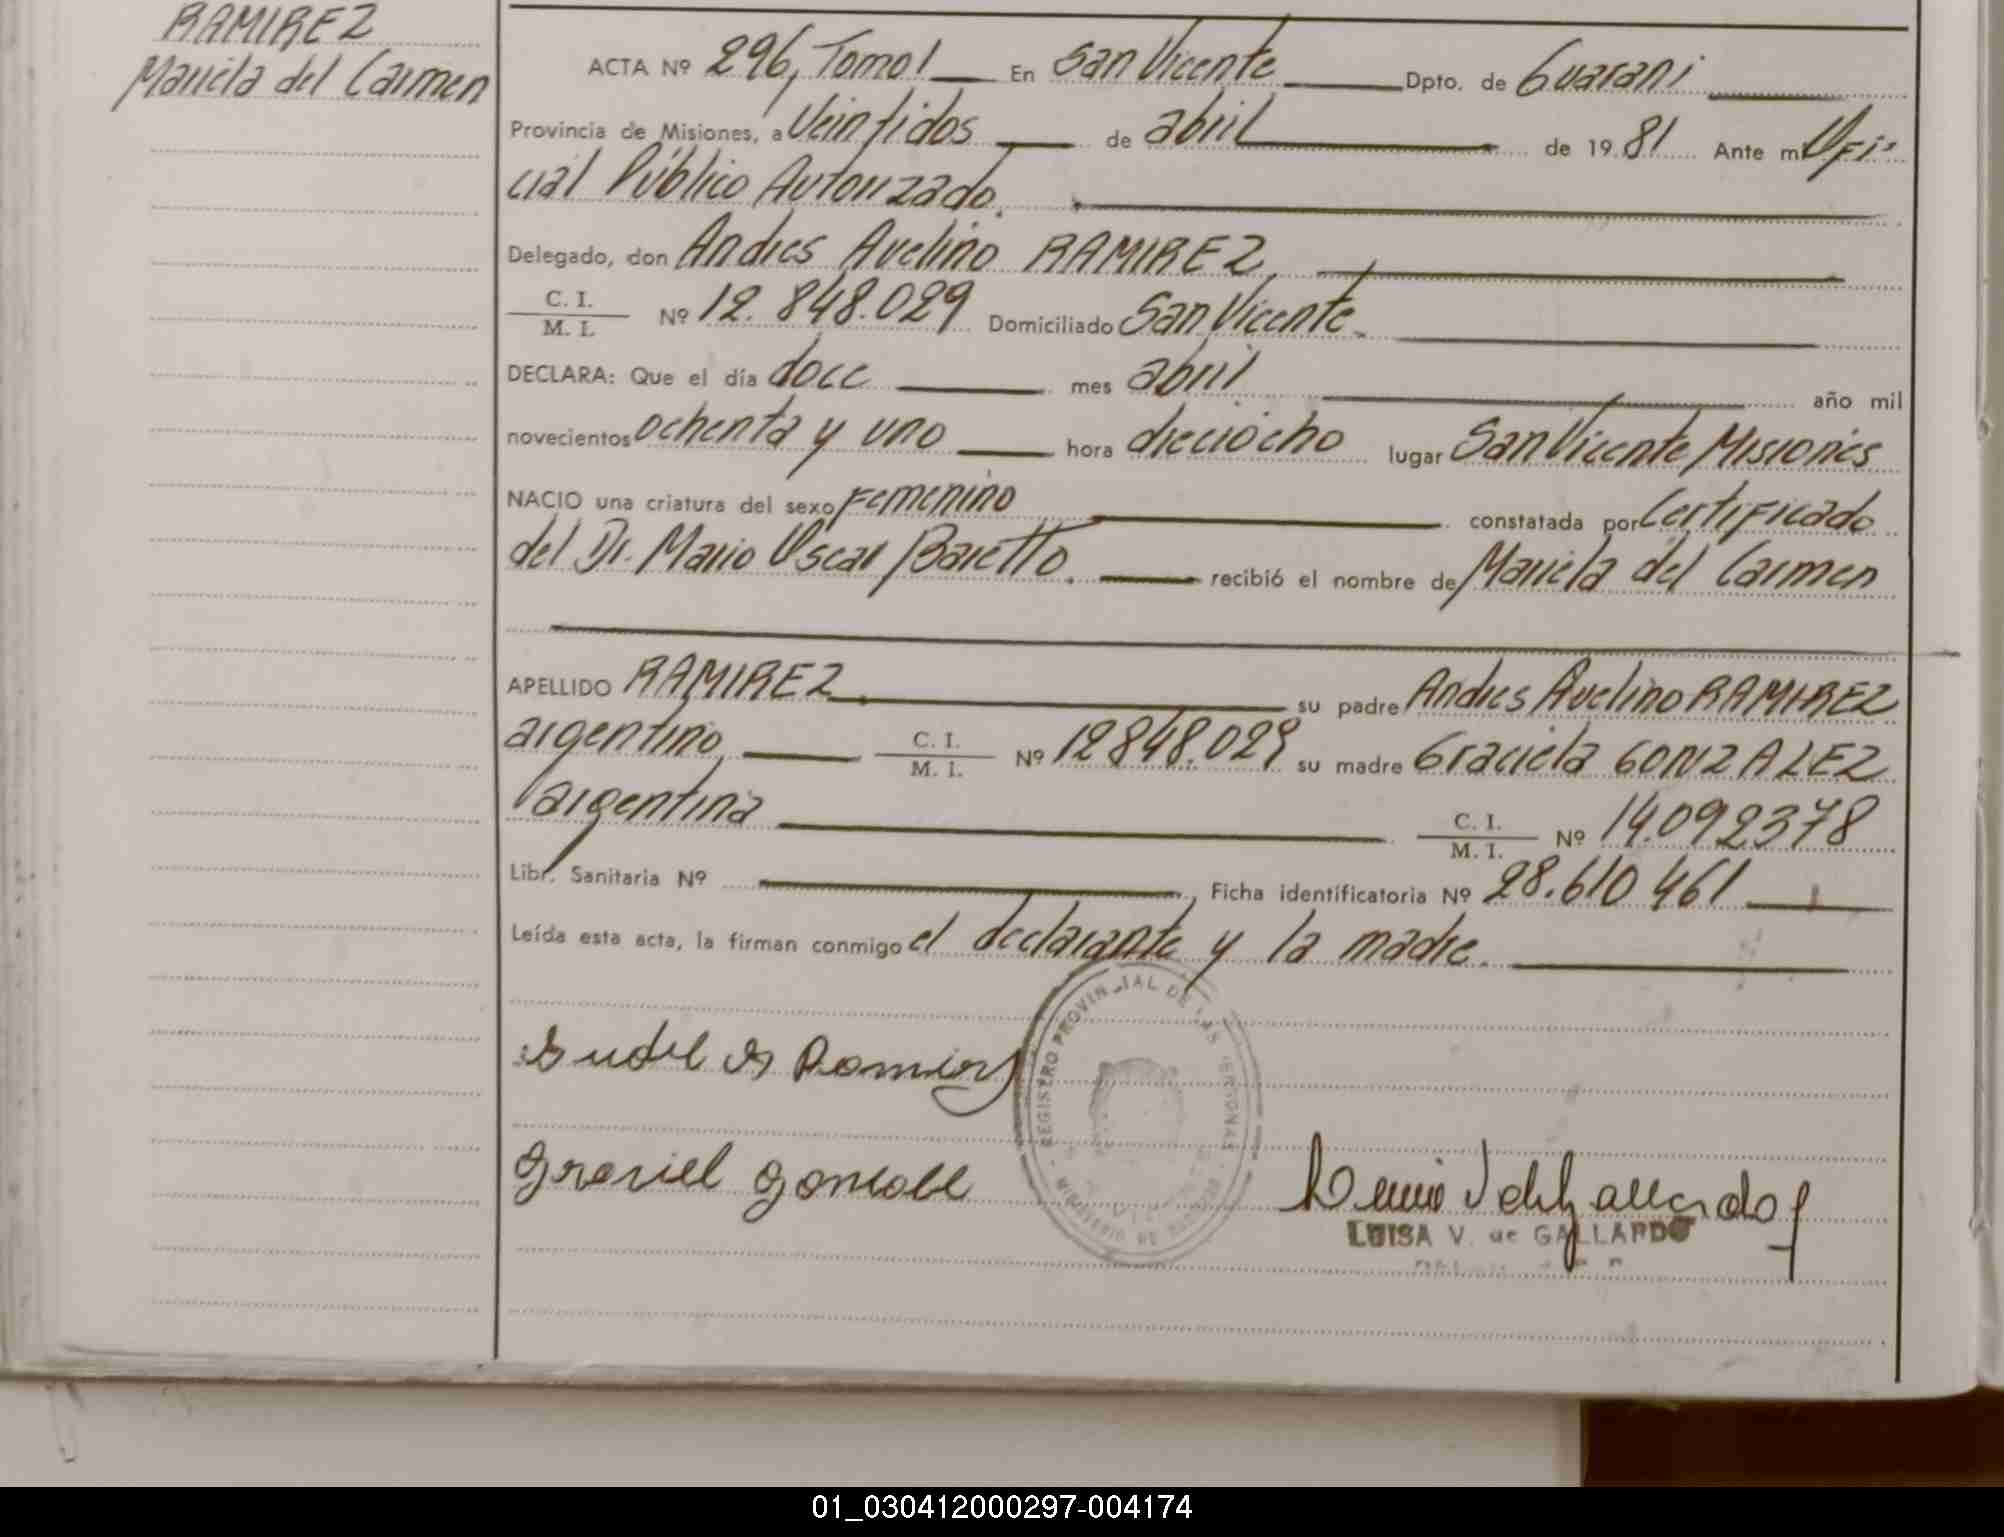 RAMIREZ
Mariela del Carmen
ACTA Nº 296, Tomo I En San Vicente Dpto. de Guarani
Provincia de Misiones, a Veintidos de abril de 19 81 Ante mi Ofi-
cial Público Autorizado.
Delegado, don Andres Avelino RAMIREZ,
C. I.
M. I. Nº 12.848.029 Domiciliado San Vicente.
DECLARA: Que el día doce mes abril año mil
novecientos ochenta y uno hora dieciocho lugar San Vicente Misiones
NACIO una criatura del sexo Femenino constatada por Certificado
del Dr. Mario Oscar Baretto. recibió el nombre de Mariela del Carmen
APELLIDO RAMIREZ. su padre Andres Avelino RAMIREZ
argentino, C. I. M. I. Nº 12848.029 su madre Graciela GONZALEZ
argentina C. I. M. I. Nº 14.092378
Libr. Sanitaria Nº , Ficha identificatoria Nº 28.610461
Leída esta acta, la firman conmigo el declarante y la madre.
REGISTRO PROVINCIAL DE LAS PERSONAS
MINISTERIO DE
LUISA V. de GALLARDO
01_030412000297-004174